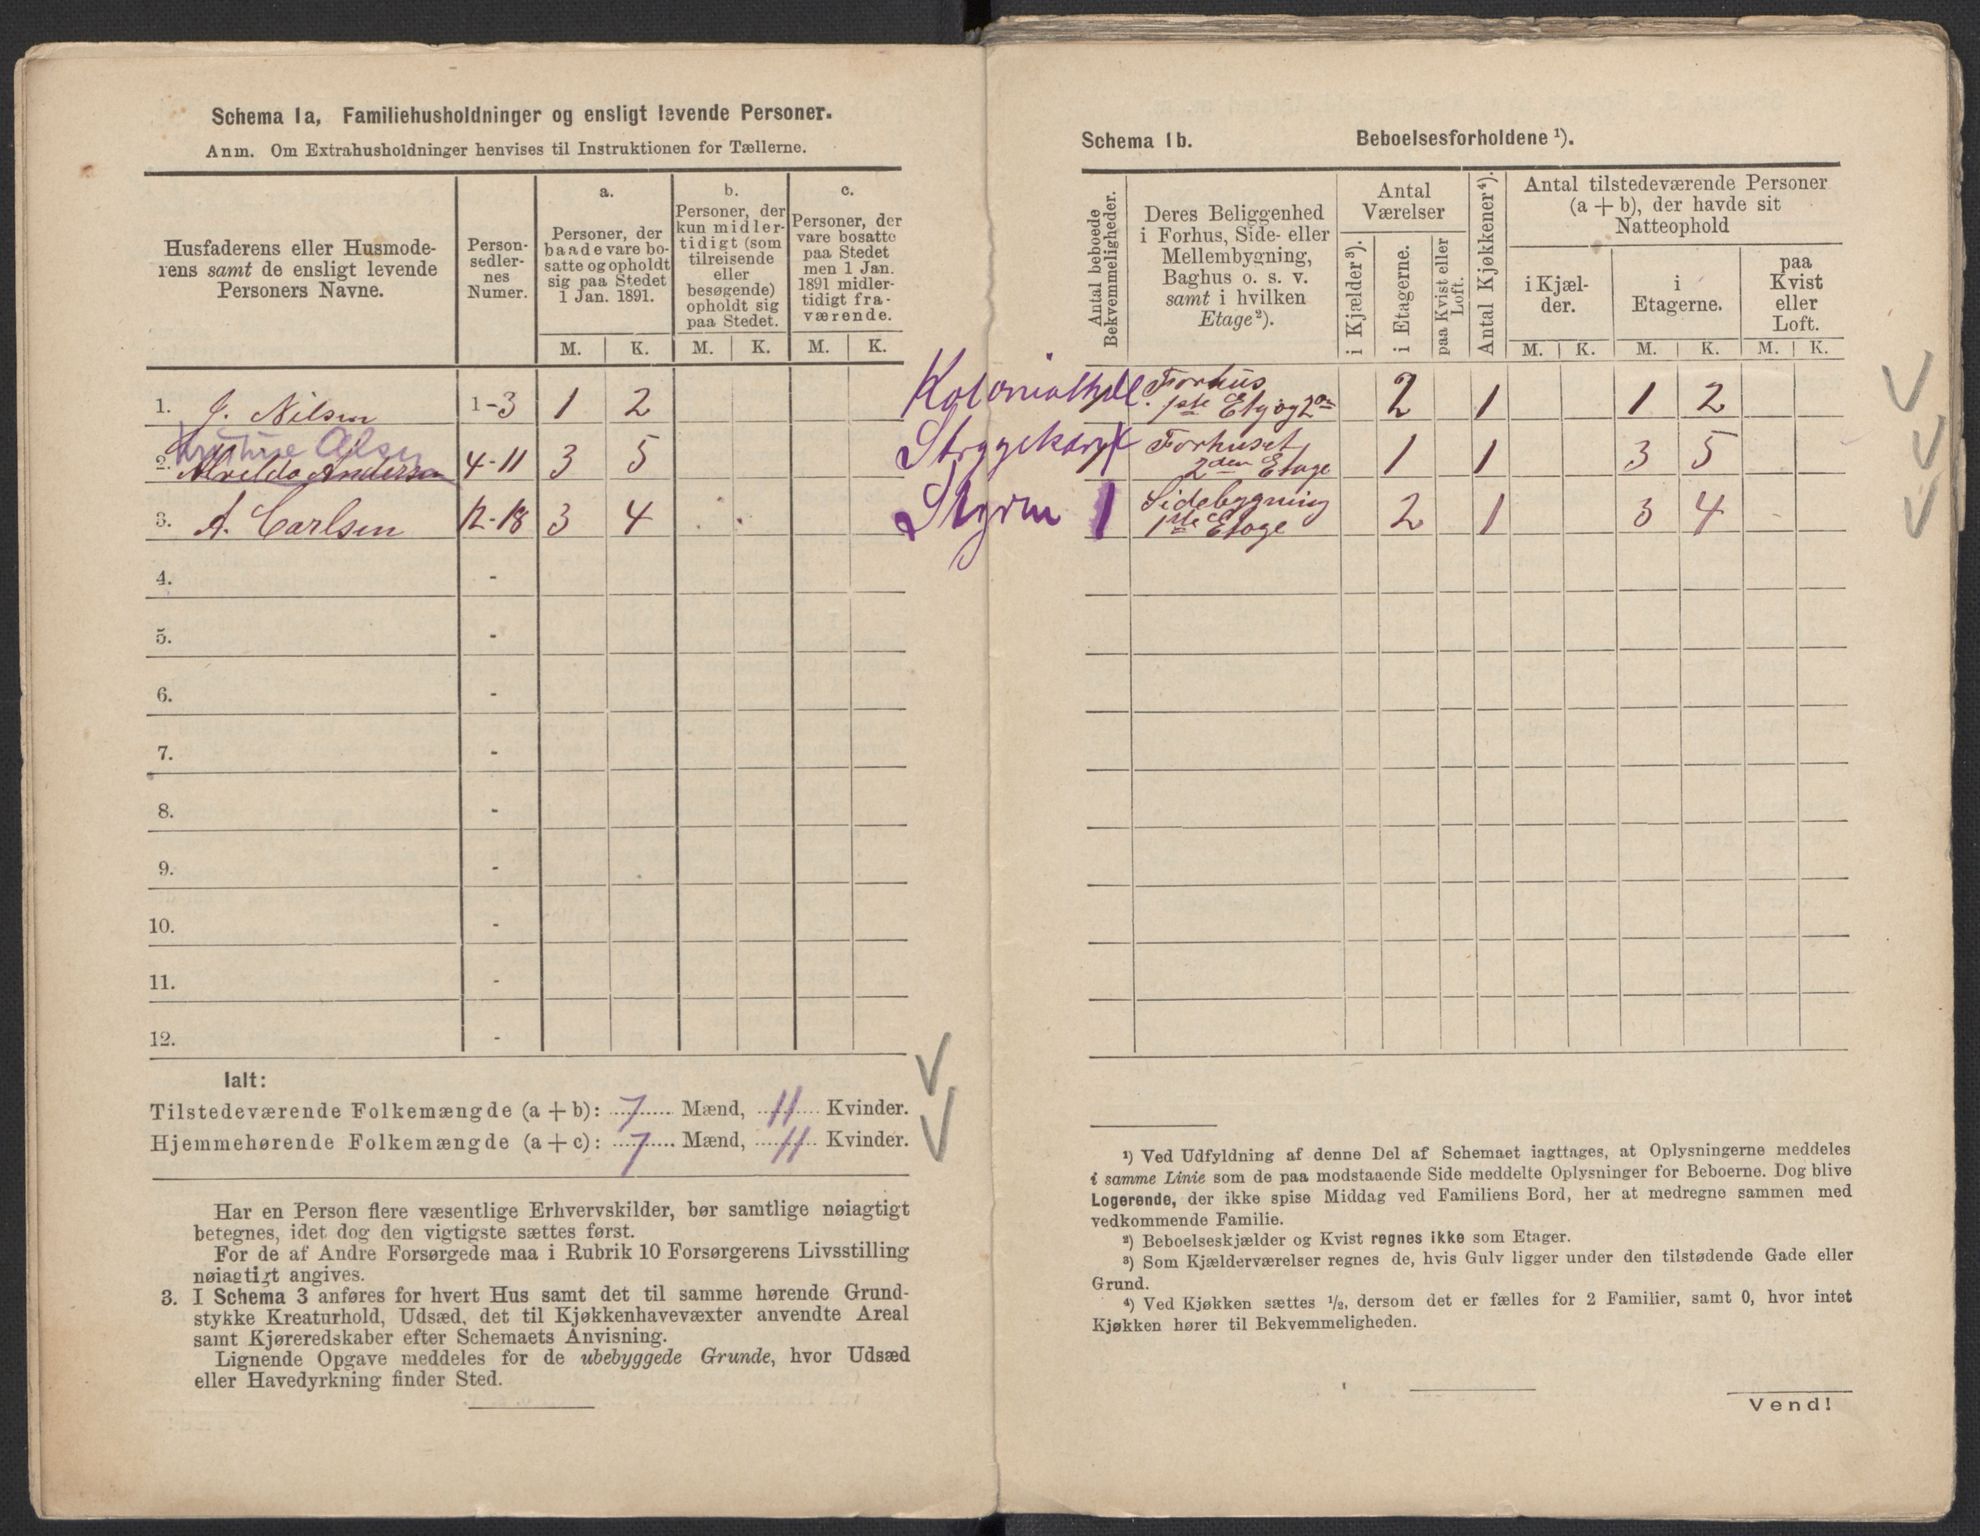 Schema 1a, Familiehusholdninger og ensligt levende Personer.
Anm. Om Extrahusholdninger henvises til Instruktionen for Tællerne.
Husfaderens eller Husmode-
rens samt de ensligt levende
Personers Navne.
Person-
sedler-
nes
Numer.
a.
Personer, der
baade vare bo-
satte og opholdt
sig paa Stedet
1 Jan. 1891.
b.
Personer, der
kun midler-
tidigt (som
tilreisende
eller
besøgende)
opholdt sig
paa Stedet.
c.
Personer, der
vare bosatte
paa Stedet
men 1 Jan.
1891 midler-
tidigt fra-
værende.
M. K. M. K. M. K.
1. J. Nilsen 1-3 1 2
Kristine Olsen
2. Alvilda Andersen 4-11 3 5
3. A. Carlsen 12-18 3 4
4. -
5. -
6. -
7. -
8. -
9. -
10. -
11. -
12. -
Ialt:
Tilstedeværende Folkemængde (a + b): 7 Mænd, 11 Kvinder.
Hjemmehørende Folkemængde (a + c): 7 Mænd, 11 Kvinder.
Har en Person flere væsentlige Erhvervskilder, bør samtlige nøiagtigt
betegnes, idet dog den vigtigste sættes først.
For de af Andre Forsørgede maa i Rubrik 10 Forsørgerens Livsstilling
nøiagtigt angives.
3. I Schema 3 anføres for hvert Hus samt det til samme hørende Grund-
stykke Kreaturhold, Udsæd, det til Kjøkkenhavevæxter anvendte Areal
samt Kjøreredskaber efter Schemaets Anvisning.
Lignende Opgave meddeles for de ubebyggede Grunde, hvor Udsæd
eller Havedyrkning finder Sted.
Schema 1b. Beboelsesforholdene ¹).
Antal beboede
Bekvemmeligheder.
Deres Beliggenhed
i Forhus, Side- eller
Mellembygning,
Baghus o. s. v.
samt i hvilken
Etage²).
Antal
Værelser
i Kjælder³).
i Etagerne.
paa Kvist eller
Loft.
Antal Kjøkkener⁴).
Antal tilstedeværende Personer
(a + b), der havde sit
Natteophold
i Kjæl-
der.
i
Etagerne.
paa
Kvist
eller
Loft.
M. K. M. K. M. K.
Forhus
1ste Etg og 2en 2 1 1 2
Forhuset
2den Etage 1 1 3 5
Styrm 1 Sidebygning
1ste Etage 2 1 3 4
¹) Ved Udfyldning af denne Del af Schemaet iagttages, at Oplysningerne meddeles
i samme Linie som de paa modstaaende Side meddelte Oplysninger for Beboerne. Dog blive
Logerende, der ikke spise Middag ved Familiens Bord, her at medregne sammen med
vedkommende Familie.
²) Beboelseskjælder og Kvist regnes ikke som Etager.
³) Som Kjælderværelser regnes de, hvis Gulv ligger under den tilstødende Gade eller
Grund.
⁴) Ved Kjøkken sættes ½, dersom det er fælles for 2 Familier, samt 0, hvor intet
Kjøkken hører til Bekvemmeligheden.
Vend!